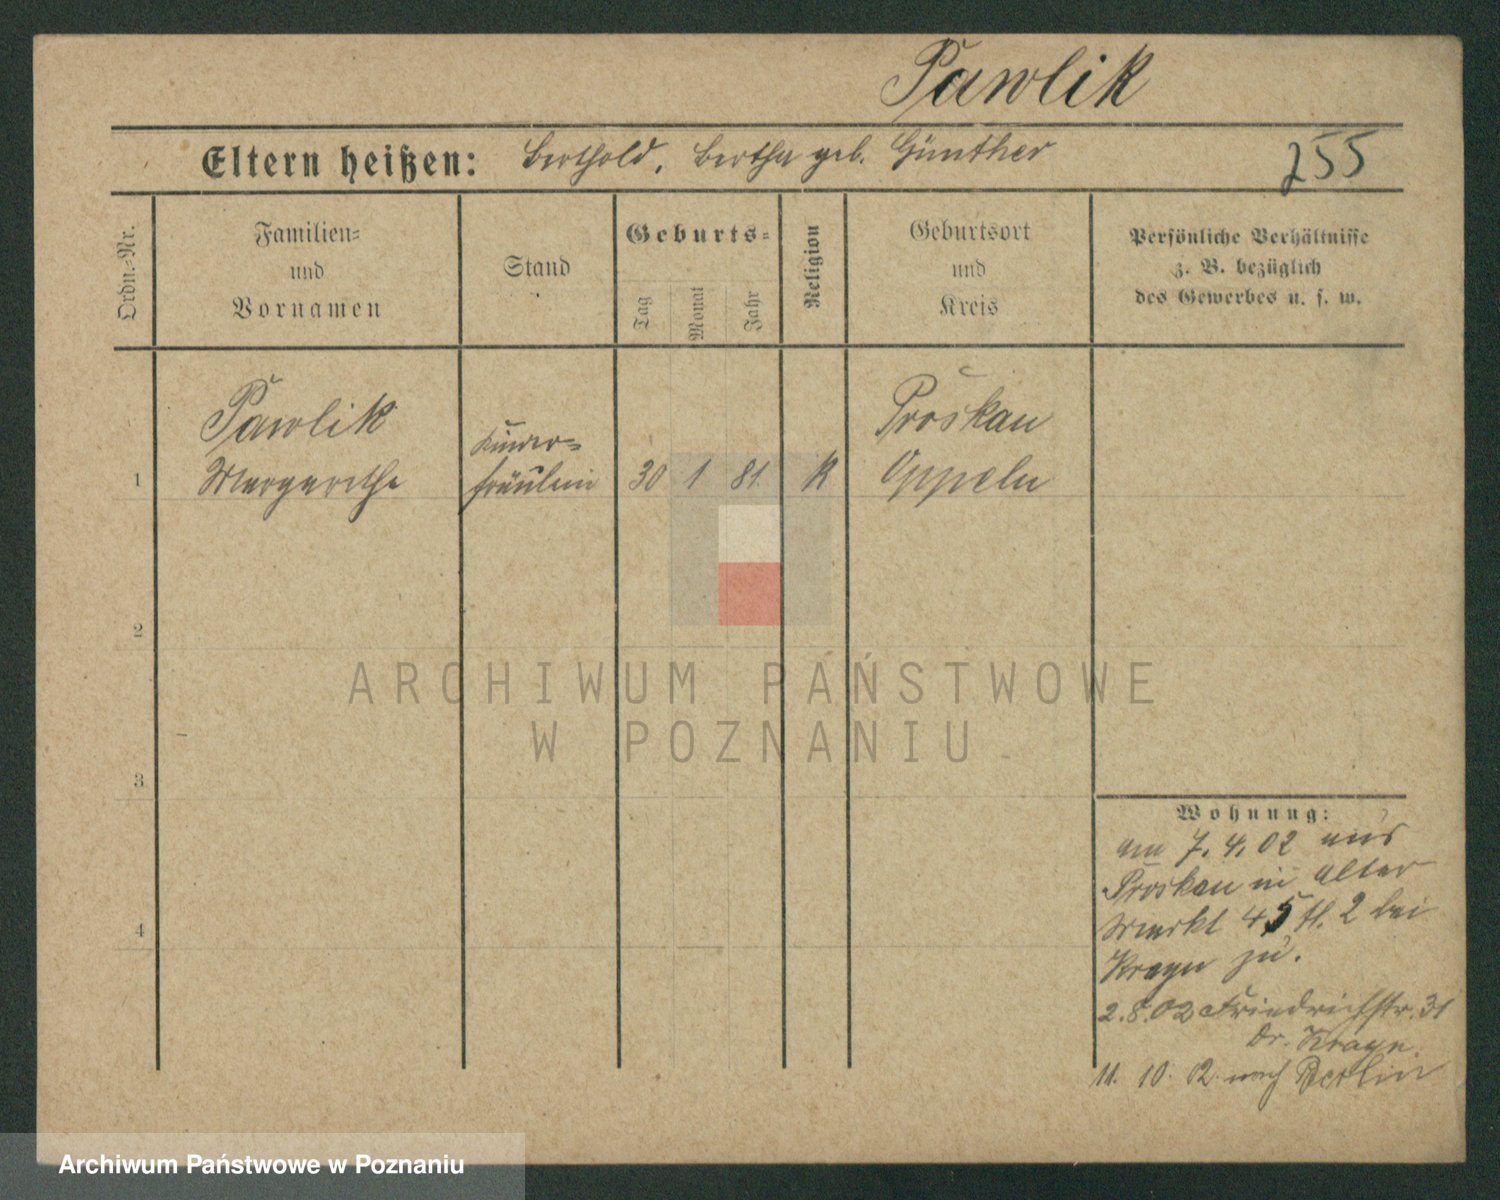 Pawlik
Eltern heißen: Berthold, Bertha geb. Günther
255
Ordn.=Nr.
Familien=
und
Vornamen
Stand
Geburts=
Tag
Monat
Jahr
Religion
Geburtsort
und
Kreis
Persönliche Verhältnisse
z. B. bezüglich
des Gewerbes u. s. w.
1
Pawlik
Margarethe
Kinder=
fräulein
30
1
81
K
Proskau
Oppeln
2
3
4
Wohnung:
am 7. 4. 02 aus
Proskau in Alter
Markt 45 II. 2 bei
Krayn zu.
2.8.02 Friedrichstr. 31
Dr. Krayn.
11. 10. 02. nach Berlin
ARCHIWUM PAŃSTWOWE
W POZNANIU
Archiwum Państwowe w Poznaniu